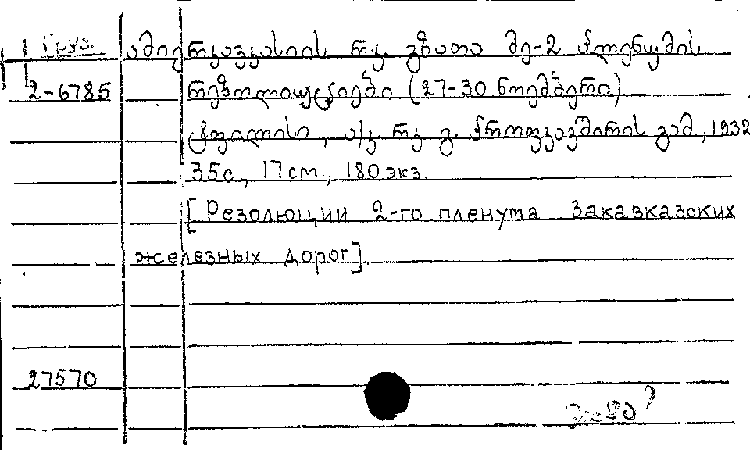 Груз. ამიერკავკასიის რკ. გზათა მე-2 პლენუმის
2-6785 რეზოლიუციები (27-30 ნოემბერი)
ტფილისი, ა/კ რკ. გ. პროფკავშირის გამ., 1932
35с., 17см., 180экз.
[Резолюции 2-го пленума Заказказских
железных дорог].
27570